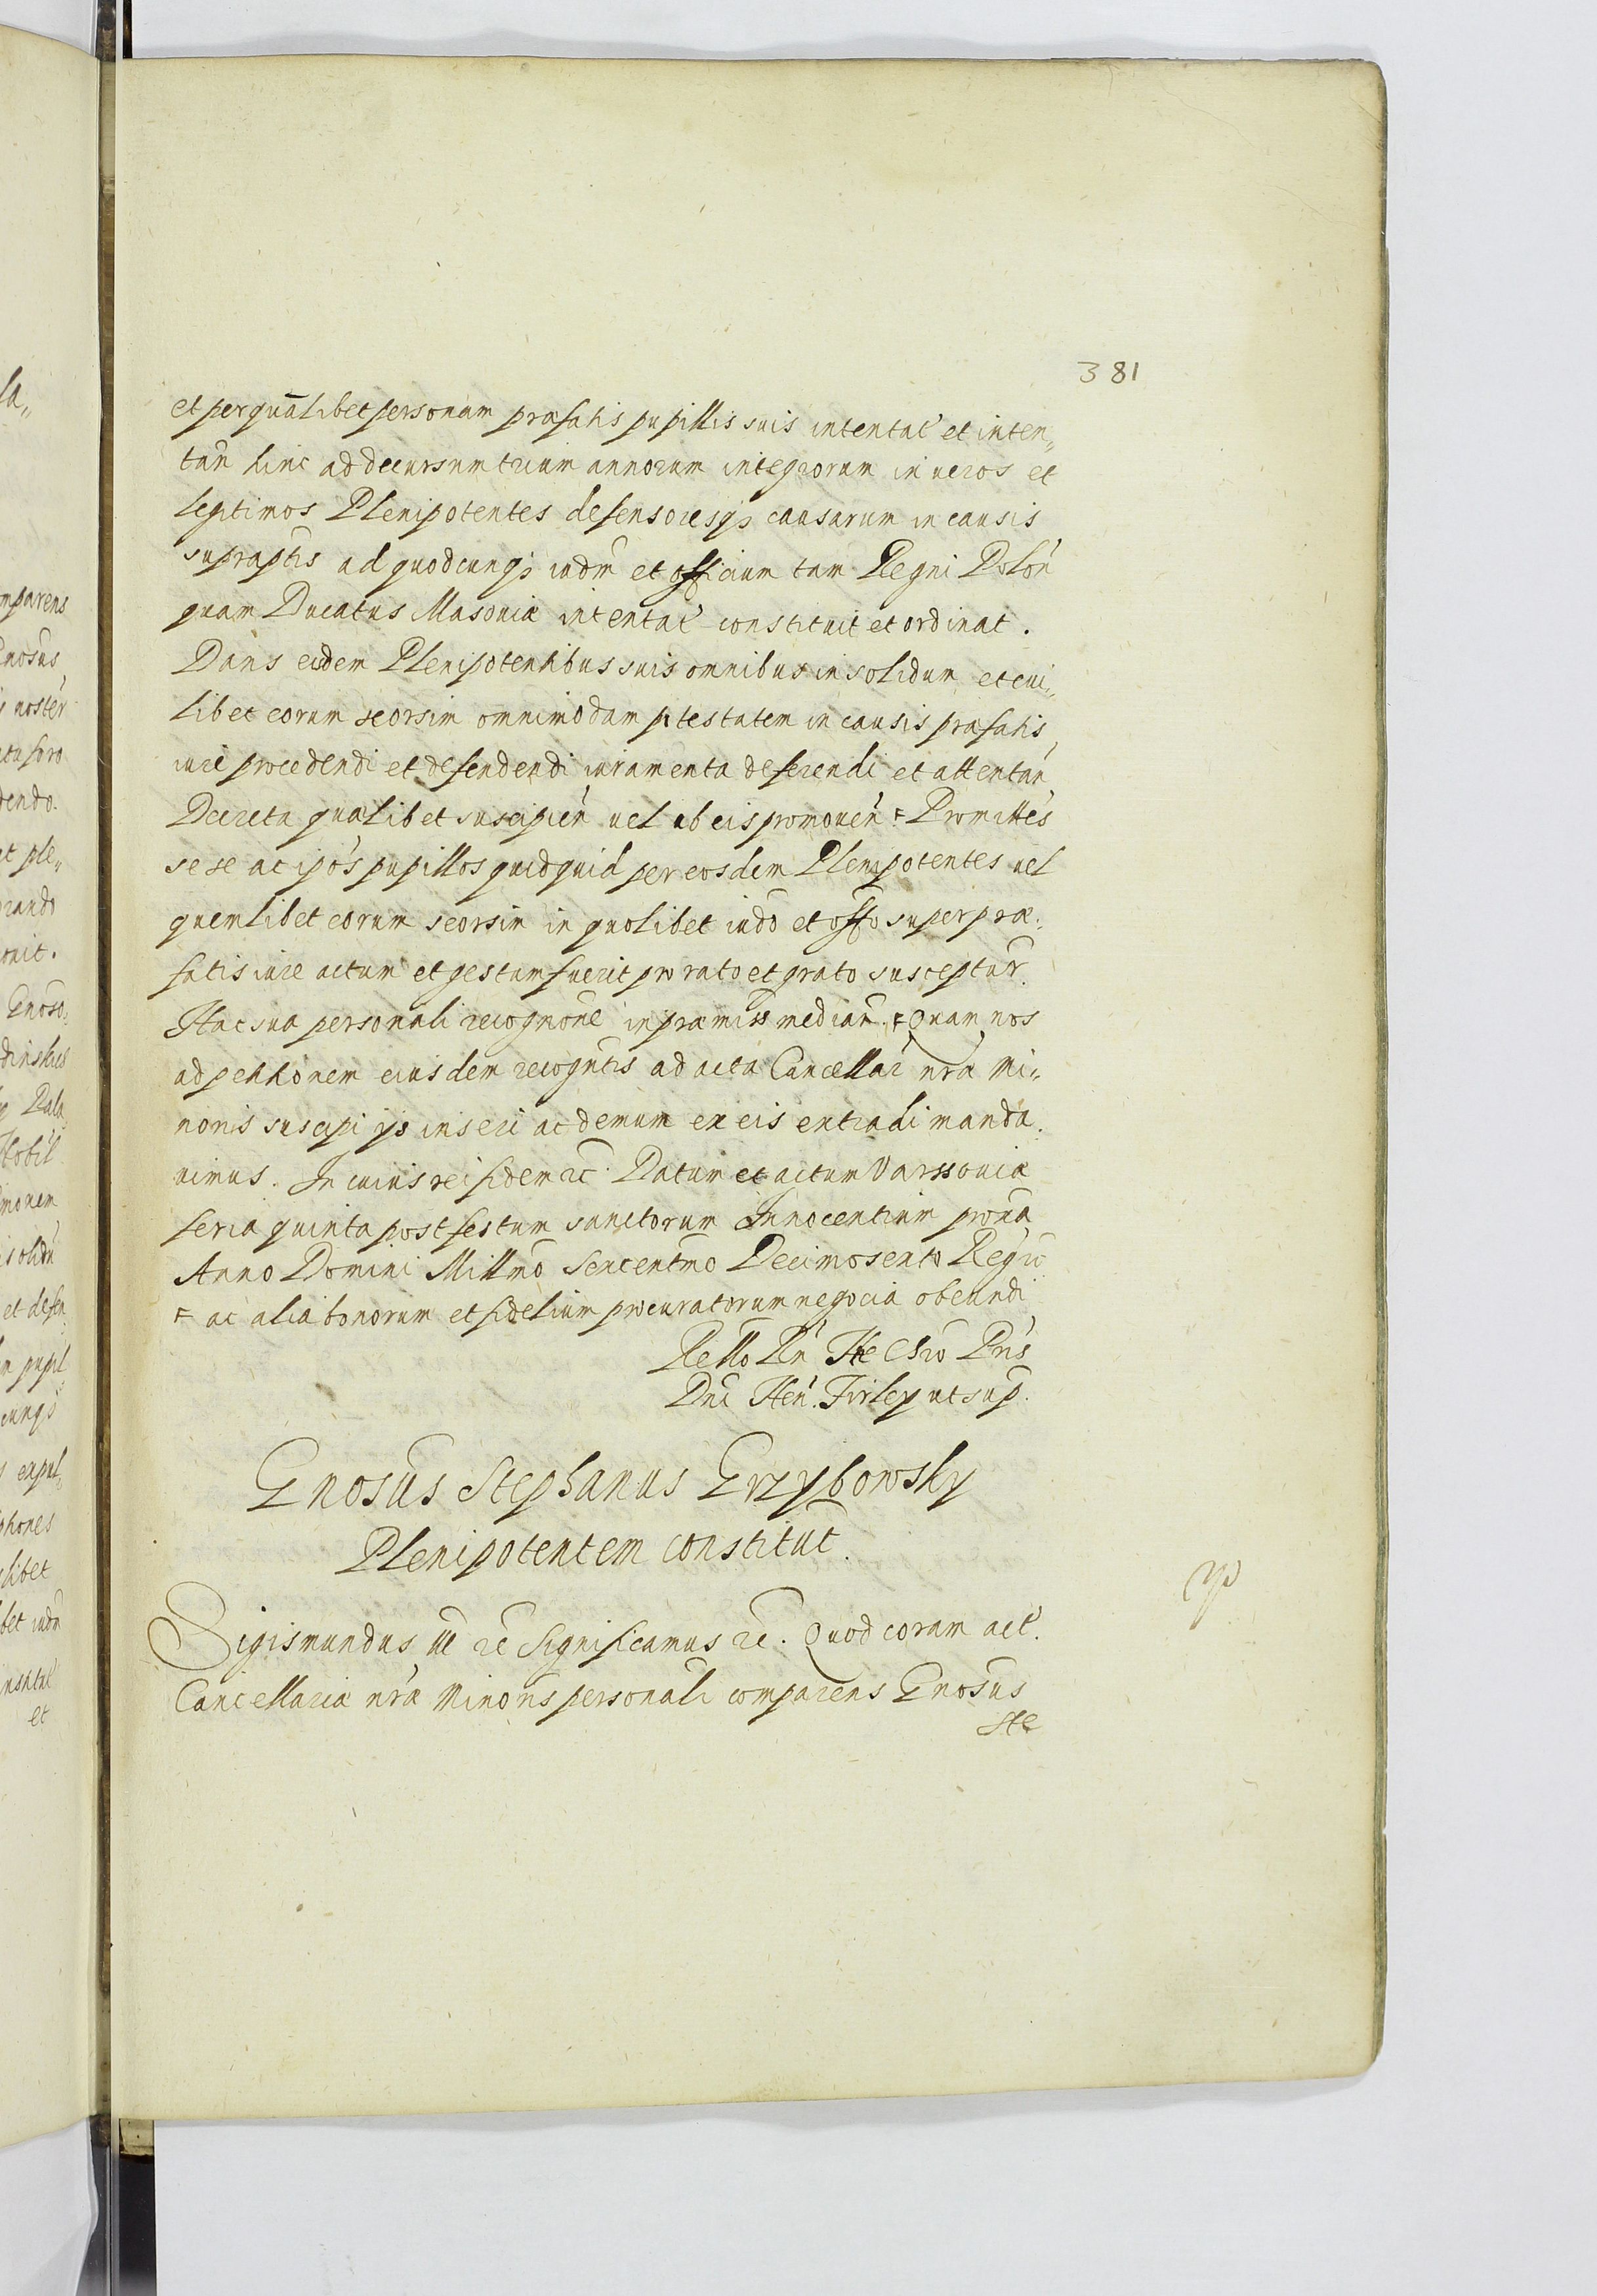 381
et per quālibet personam præfatis pupillis suis intentat' et inten„
tan̄ hinc ad decursum trium annorum integrorum in veros et
legitimos Plenipotentes defensoresq₃ causarum in causis
suprap̄tis ad quodcunq₃ iud̄m et officium tam Regni Polon'
quam Ducatus Masoviæ intentat' constituit et ordinat.
Dans eidem Plenipotentibus suis omnibus in solidum et cui„
libet eorum seorsim omnimodam p̄testatem in causis præfatis
iure procedendi et defendendi iuramenta deferendi et attentan'
Decreta quælibet suscipien' vel ab eis promoven' ⁊ Promittēs
sese ac ip̄os pupillos quidquid per eosdem Plenipotentes vel
quemlibet eorum seorsim in quolibet iud̄o et off̄o super præ„
fatis iure actum et gestum fuerit pro rato et grato susceptur̄.
Hac sua personali recogn̄one in præmiss median̄. ⁊ Quam nos
ad petitionem eiusdem recogn̄tis ad acta Cancellar' n̄ræ Mi„
noris suscipi ijs inseri ac demum ex eis extradi manda„
vimus. In cuius rei fidem ꝛc̄. Datum et actum Varssoviæ
feria quinta post festum sanctorum Innocentium prox̄a
Anno Domini Mill̄mo Sexcent̄mo Decimosexto Regn̄o
⁊ ac alia bonorum et fidelium procuratorum negocia obeundi
Rell̄o R̄n' He Ch̄ro P̄ris
Dn̄i Hen'. Firley ut sup̄.
Gnosūs Stephanus Grzybowsky
Plenipotentem constitut̄.
Sigismundus III ꝛc̄ Significamus ꝛc̄. Quod coram act'.
Cancellariæ n̄ræ Minoris personal̄r comparens Gnosūs
Ste